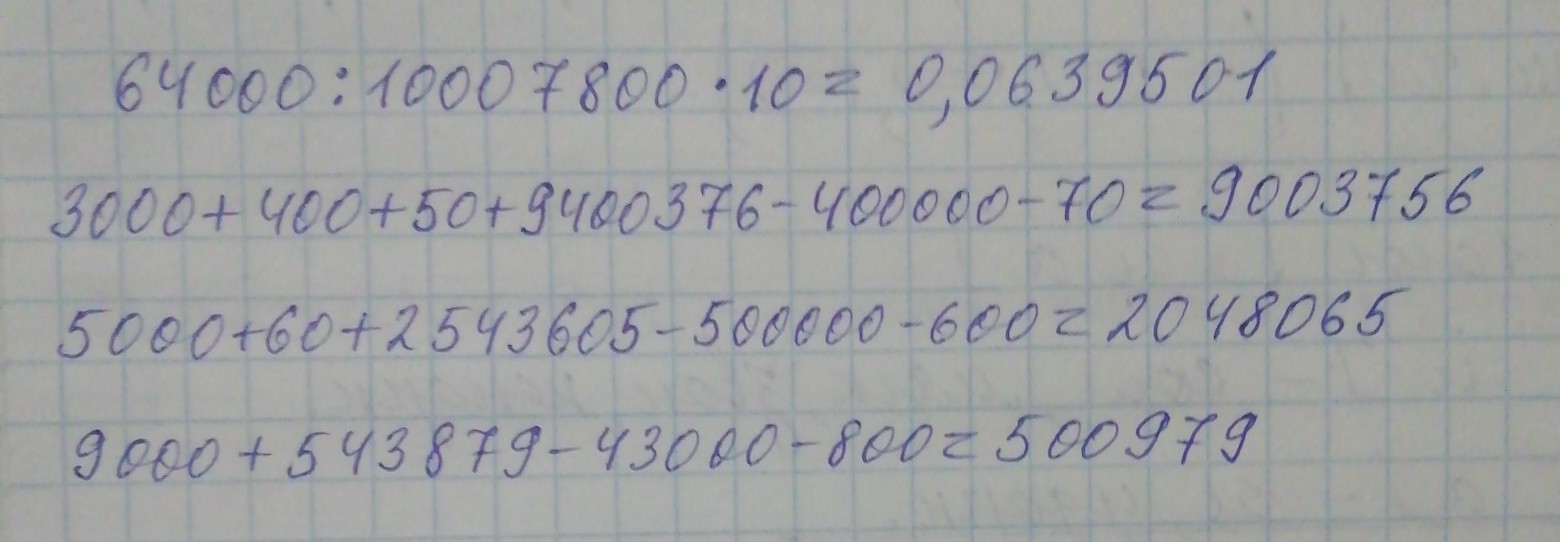 64000:10007800·10=0,0639501
3000+400+50+9400376-400000-70=9003756
5000+60+2543605-500000-600=2048065
9000+543879-43000-800=500979